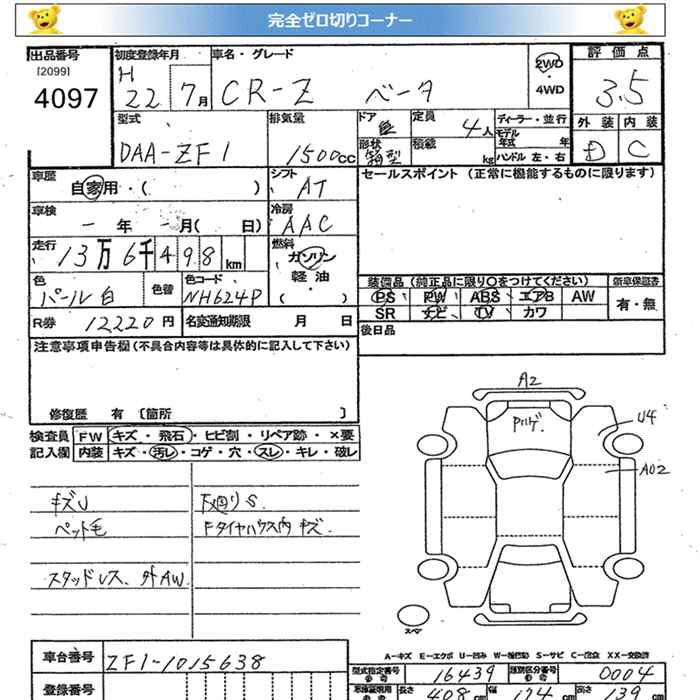 完全ゼロ切りコーナー
出品番号
[2099]
4097
初度登録年月
H
22 7月
車名・グレード
CR-Z ベータ
2WD
・4WD
評価点
3.5
外装 内装
D C
型式
DAA-ZF1
排気量
1500cc
ドア
形状
箱型
定員
4人
積載
kg
ディーラー・並行
モデル年式 年
ハンドル 左・右
車歴
自家用・( )
シフト
AT
セールスポイント (正常に機能するものに限ります)
車検
- 年 - 月( 日)
冷房
AAC
走行
13万6千498km
燃料
ガソリン
軽油
( ・ )
色
パール白
色替
色コード
NH624P
装備品(純正品に限り○をつけてください)
新車保証書
PS PW ABS エアB AW
SR ナビ TV カワ
有・無
R券 12220円
名変通知期限 月 日
後日品
注意事項申告欄(不具合内容等は具体的に記入して下さい)
修復歴 有 [箇所 ]
検査員
記入欄
FW キズ・飛石・ヒビ割・リペア跡・×要
内装 キズ・汚レ・コゲ・穴・スレ・キレ・破レ
キズU
ペット毛
スタッドレス、外AW
下廻りS
Fタイヤハウス内キズ
A2
Pハゲ
U4
A02
スペア
A-キズ E-エクボ U-凹み W-補修跡 S-サビ C-腐食 XX-交換済
車台番号 ZF1-1015638
型式指定番号 16439
類別区分番号 0004
登録番号
長さ 408 cm
幅 174 cm
高さ 139 cm